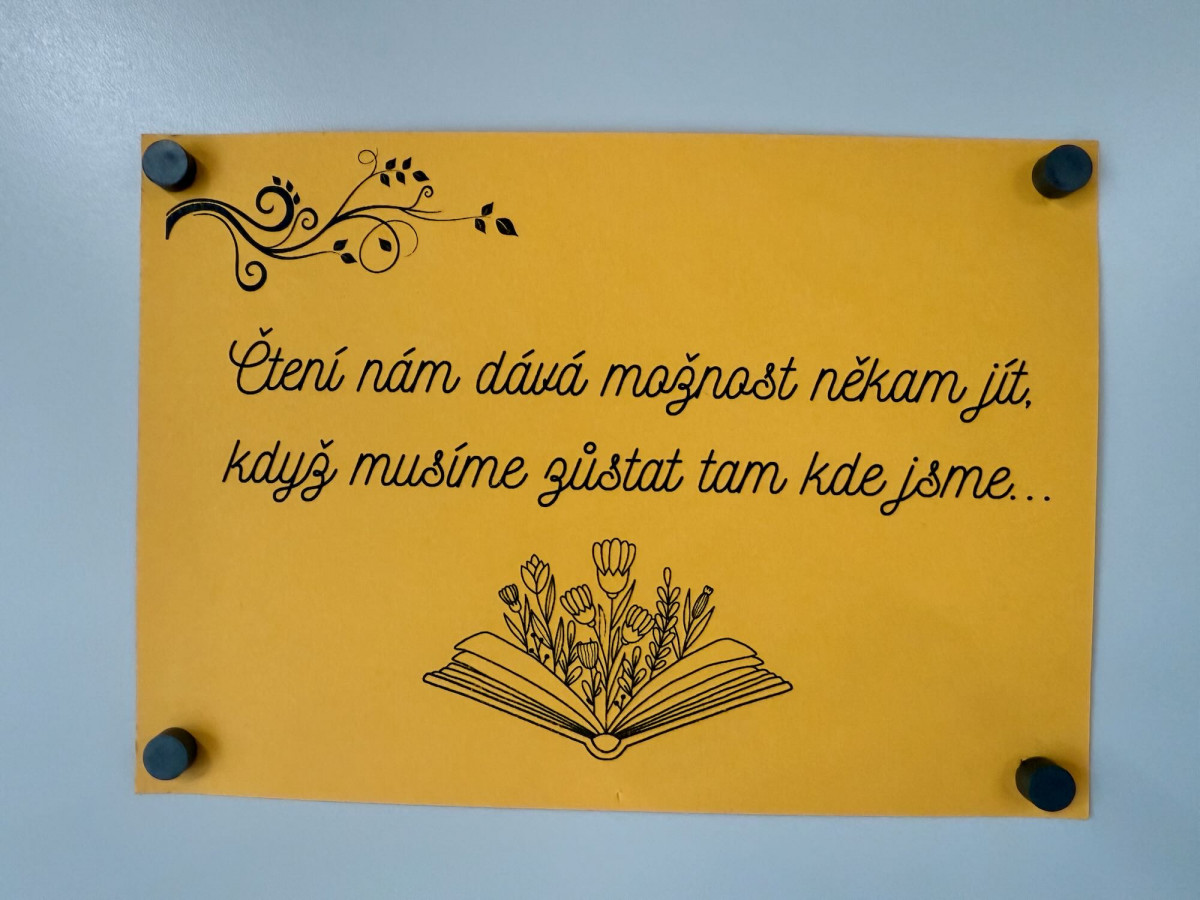 Čtení nám dává možnost někam jít,
když musíme zůstat tam kde jsme...